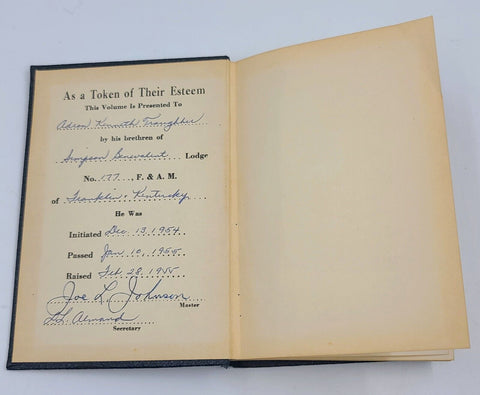 As a Token of Their Esteem
This Volume is Presented To
Adron Kenneth Traughber
by his brethren of
Simpson Benevolent Lodge
No. 177, F. & A. M.
of Franklin, Kentucky
He Was
Initiated Dec. 13, 1954
Passed Jan 10, 1955
Raised Feb 28, 1955
Joe L. Johnson
Master
L.L. Almand
Secretary